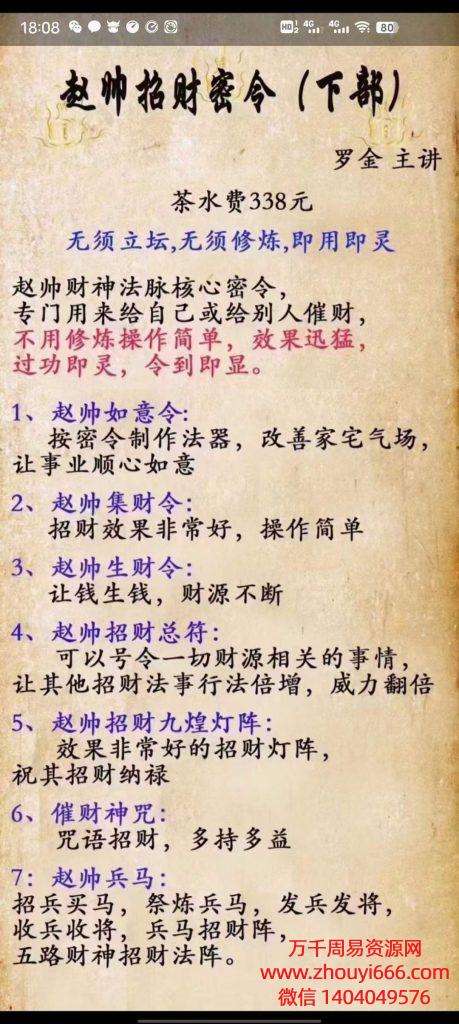 18:08
HD 4G 4G 80
赵帅招财密令（下部）
罗金 主讲
茶水费338元
无须立坛,无须修炼,即用即灵
赵帅财神法脉核心密令，
专门用来给自己或给别人催财，
不用修炼操作简单，效果迅猛，
过功即灵，令到即显。
1、赵帅如意令:
按密令制作法器，改善家宅气场，
让事业顺心如意
2、赵帅集财令:
招财效果非常好，操作简单
3、赵帅生财令:
让钱生钱，财源不断
4、赵帅招财总符:
可以号令一切财源相关的事情，
让其他招财法事行法倍增，威力翻倍
5、赵帅招财九煌灯阵:
效果非常好的招财灯阵，
祝其招财纳禄
6、催财神咒:
咒语招财，多持多益
7: 赵帅兵马:
招兵买马，祭炼兵马，发兵发将，
收兵收将，兵马招财阵，
五路财神招财法阵。
万千周易资源网
www.zhouyi666.com
微信 1404049576